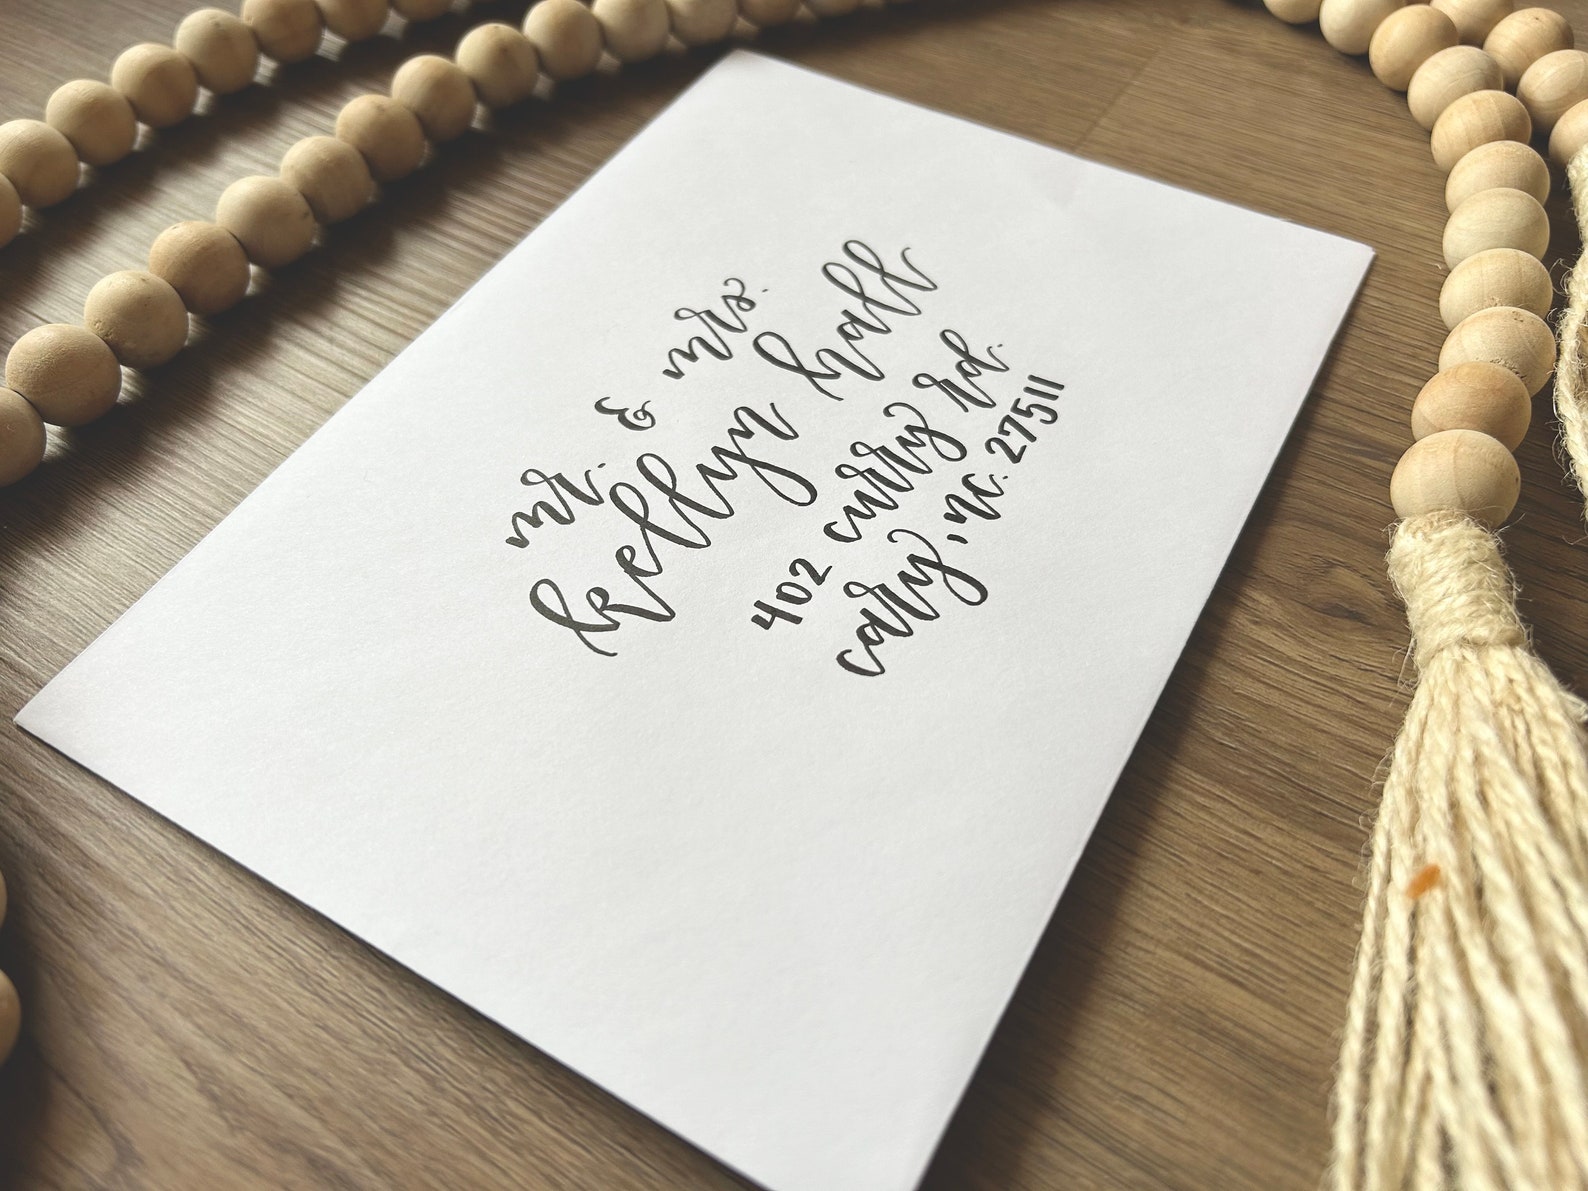 mr. & mrs.
kellyn hall
402 curry rd.
cary, nc. 27511